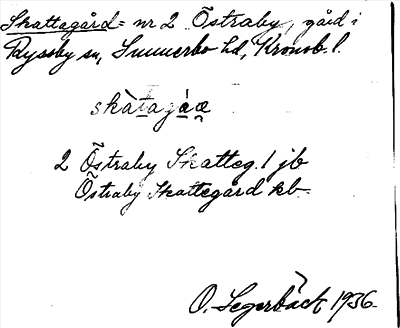 Skattagård = nr 2 Östraby, gård i
Ryssby sn, Sunnerbo hd, Kronob. l.
skàtagáæ
2 Östraby Skatteg. 1 jb
Östraby Skattegård kb
O. Segerbäck 1936.